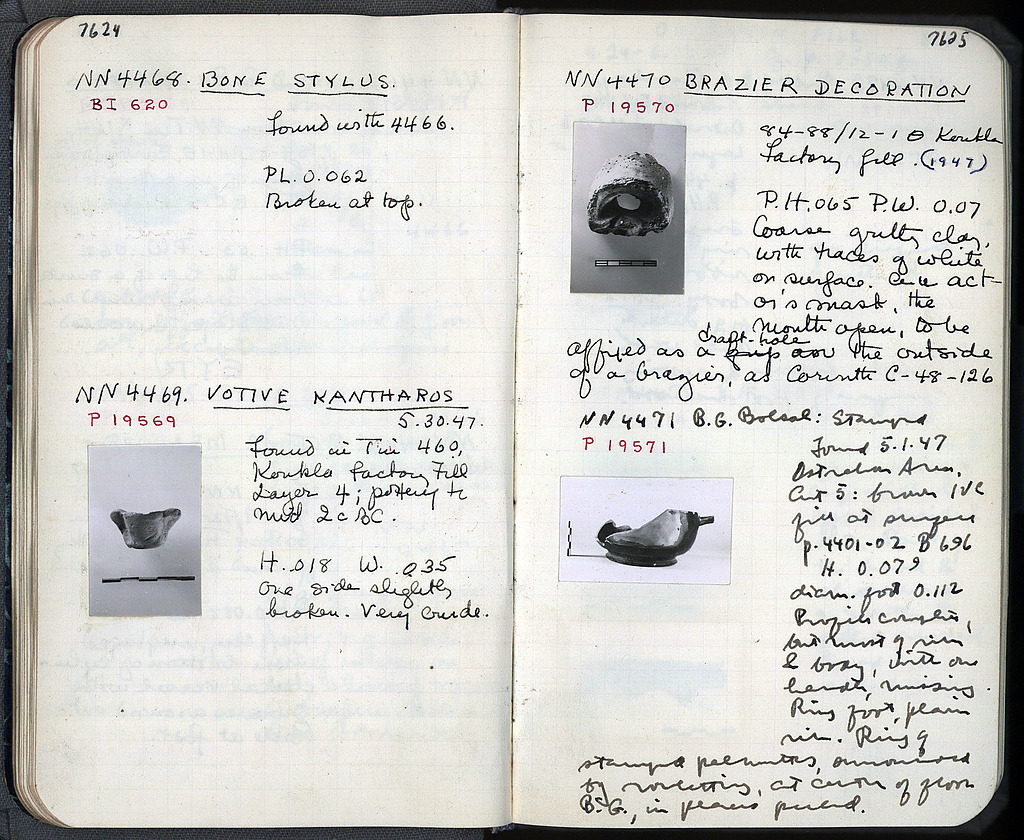 7624
NN 4468. BONE STYLUS.
BI 620
Found with 4466.
PL. 0.062
Broken at top.
NN 4469. VOTIVE KANTHAROS
P 19569
5.30.47.
Found in Tin 460,
Koukla Factory Fill
Layer 4; pottery to
mid 2c BC.
H. .018 W. .035
One side slightly
broken. Very crude.
7625
NN 4470 BRAZIER DECORATION
P 19570
84-88/12-1 Θ Koukla
Factory fill. (1947)
P.H. .065 P.W. 0.07
Coarse gritty clay,
with traces of white
on surface. An act-
or's mask, the
mouth open, to be
draft-hole
affixed as a on the outside
of a brazier, as Corinth C-48-126
NN 4471 B.G. Bolsal: Stamped
P 19571
Found 5.1.47
Ostrakon Area,
Cut 5: brown
fill at
p. 4401-02 B 696
H. 0.079
diam. foot 0.112
Profile complete,
but most of rim
& body, with one
handle, missing.
Ring foot, plain
rim. Ring of
stamped palmettes, surrounded
by rouletting, at center of floor
B.G., in places peeled.